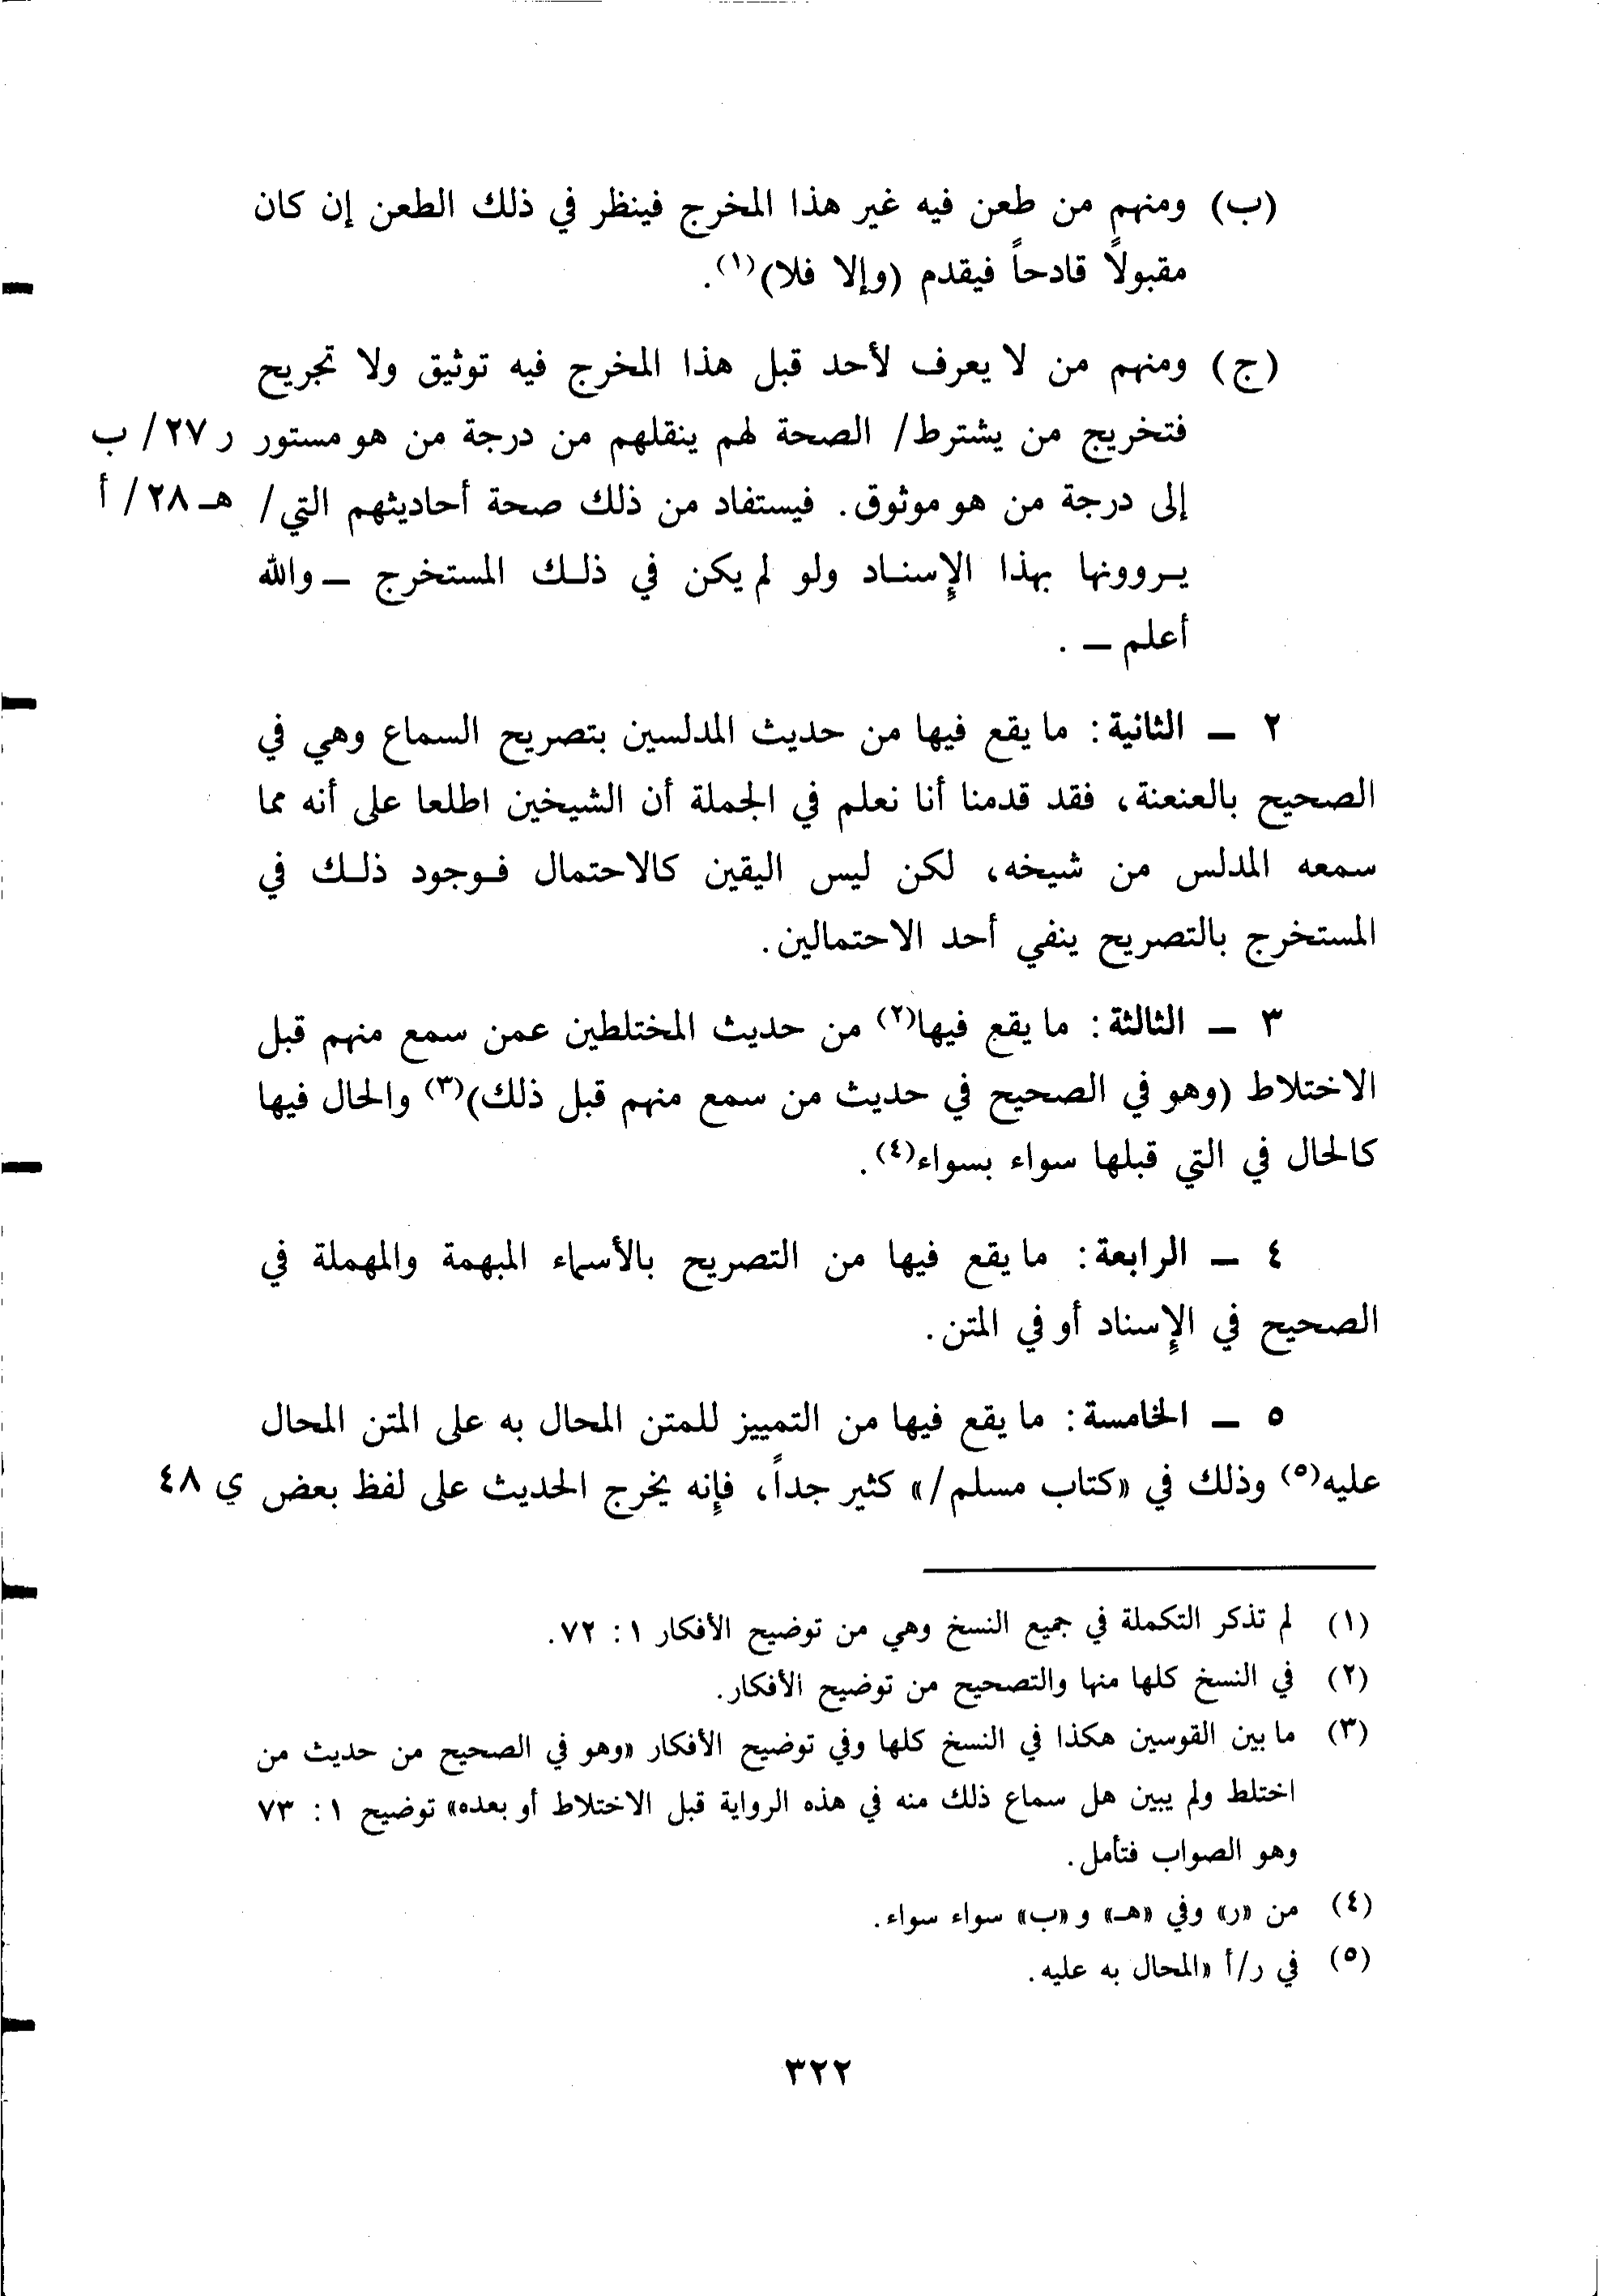 (ب) ومنهم من طعن فيه غير هذا المخرج فينظر في ذلك الطعن إن كان
مقبولاً قادحاً فيقدم (وإلا فلا)(١).
(ج) ومنهم من لا يعرف لأحد قبل هذا المخرج فيه توثيق ولا تجريح
فتخريج من يشترط/ الصحة لهم ينقلهم من درجة من هو مستور ر ٢٧/ ب
إلى درجة من هو موثوق. فيستفاد من ذلك صحة أحاديثهم التي/ هـ ٢٨/ أ
يـروونها بهذا الإسنـاد ولو لم يكن في ذلـك المستخرج ــ والله
أعلم ــ .
٢ ــ الثانية: ما يقع فيها من حديث المدلسين بتصريح السماع وهي في
الصحيح بالعنعنة، فقد قدمنا أنا نعلم في الجملة أن الشيخين اطلعا على أنه مما
سمعه المدلس من شيخه، لكن ليس اليقين كالاحتمال فـوجود ذلـك في
المستخرج بالتصريح ينفي أحد الاحتمالين.
٣ ــ الثالثة: ما يقع فيها(٢) من حديث المختلطين عمن سمع منهم قبل
الاختلاط (وهو في الصحيح في حديث من سمع منهم قبل ذلك)(٣) والحال فيها
كالحال في التي قبلها سواء بسواء(٤).
٤ ــ الرابعة: ما يقع فيها من التصريح بالأسماء المبهمة والمهملة في
الصحيح في الإسناد أو في المتن.
٥ ــ الخامسة: ما يقع فيها من التمييز للمتن المحال به على المتن المحال
عليه(٥) وذلك في «كتاب مسلم/» كثير جداً، فإنه يخرج الحديث على لفظ بعض ي ٤٨
(١) لم تذكر التكملة في جميع النسخ وهي من توضيح الأفكار ١: ٧٢.
(٢) في النسخ كلها منها والتصحيح من توضيح الأفكار.
(٣) ما بين القوسين هكذا في النسخ كلها وفي توضيح الأفكار «وهو في الصحيح من حديث من
اختلط ولم يبين هل سماع ذلك منه في هذه الرواية قبل الاختلاط أو بعده» توضيح ١: ٧٣
وهو الصواب فتأمل.
(٤) من «ر» وفي «هـ» و «ب» سواء سواء.
(٥) في ر/أ «المحال به عليه.
٣٢٢